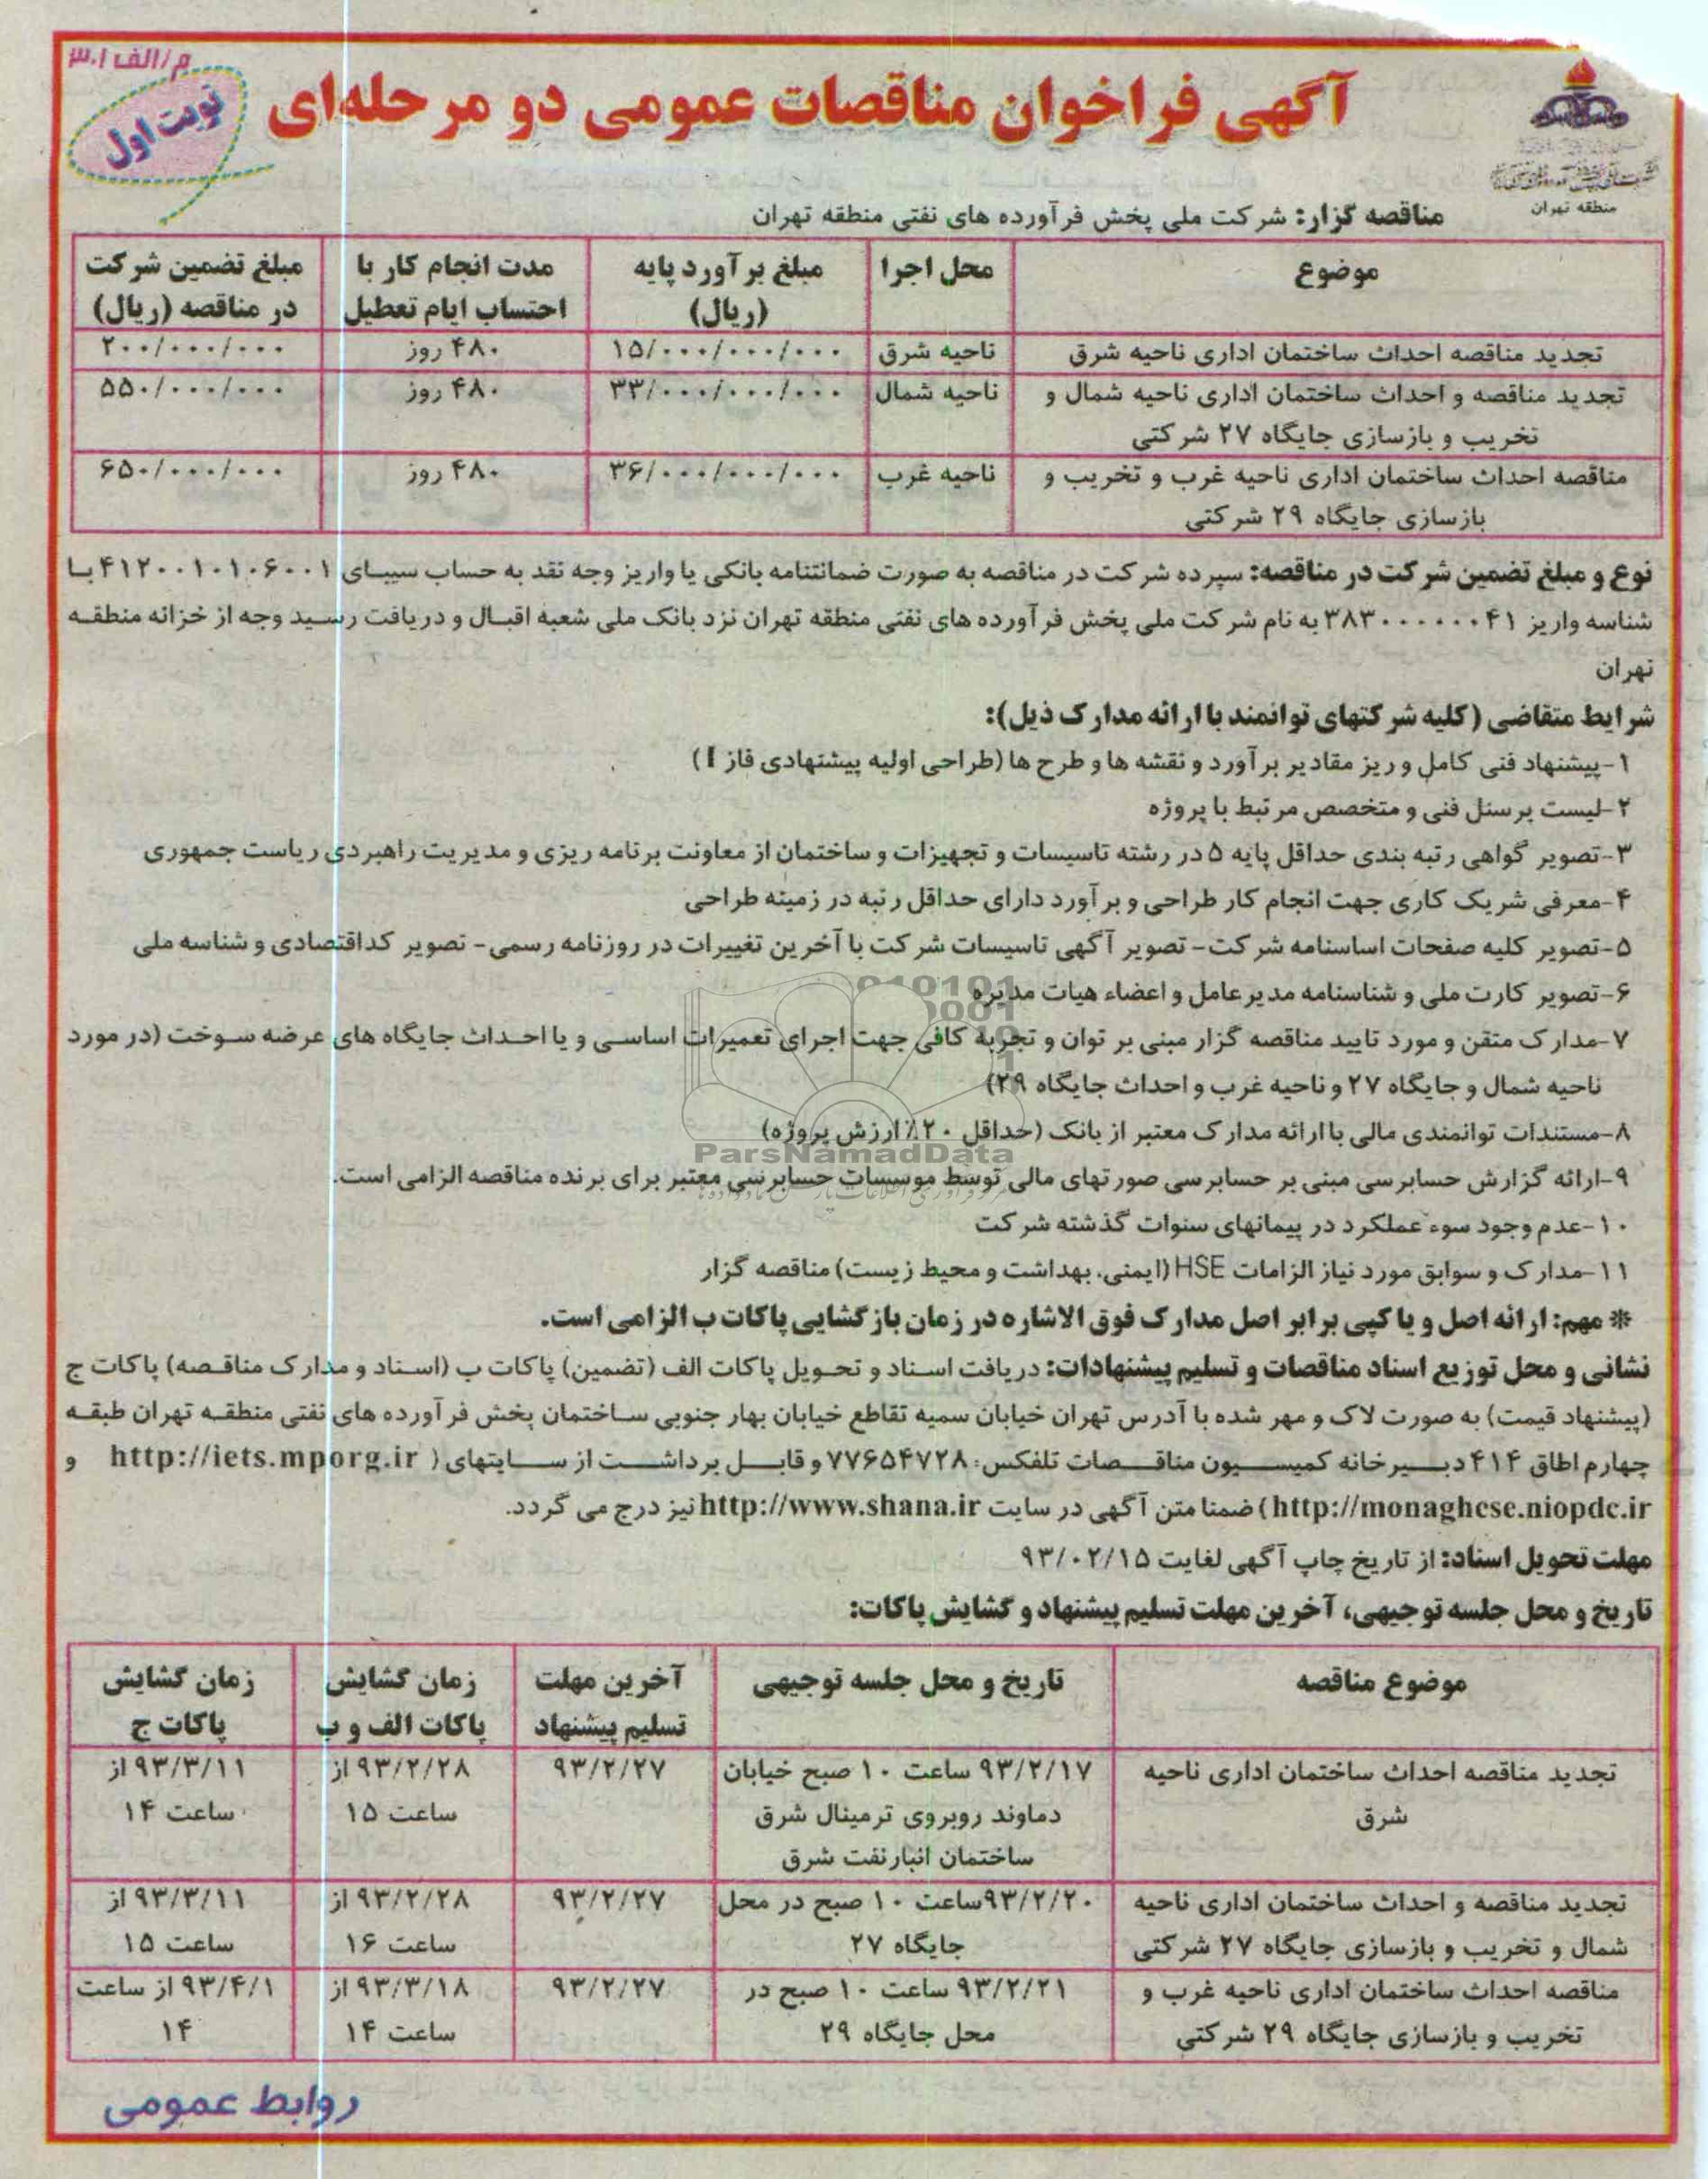 م/الف ۳۰۱
نوبت اول
آگهی فراخوان مناقصات عمومی دو مرحله‌ای
منطقه تهران
مناقصه گزار: شرکت ملی پخش فرآورده های نفتی منطقه تهران
موضوع | محل اجرا | مبلغ برآورد پایه (ریال) | مدت انجام کار با احتساب ایام تعطیل | مبلغ تضمین شرکت در مناقصه (ریال)
تجدید مناقصه احداث ساختمان اداری ناحیه شرق | ناحیه شرق | ۱۵/۰۰۰/۰۰۰/۰۰۰ | ۴۸۰ روز | ۲۰۰/۰۰۰/۰۰۰
تجدید مناقصه و احداث ساختمان اداری ناحیه شمال و تخریب و بازسازی جایگاه ۲۷ شرکتی | ناحیه شمال | ۳۳/۰۰۰/۰۰۰/۰۰۰ | ۴۸۰ روز | ۵۵۰/۰۰۰/۰۰۰
مناقصه احداث ساختمان اداری ناحیه غرب و تخریب و بازسازی جایگاه ۲۹ شرکتی | ناحیه غرب | ۳۶/۰۰۰/۰۰۰/۰۰۰ | ۴۸۰ روز | ۶۵۰/۰۰۰/۰۰۰
نوع و مبلغ تضمین شرکت در مناقصه: سپرده شرکت در مناقصه به صورت ضمانتنامه بانکی یا واریز وجه نقد به حساب سیبای ۴۱۲۰۰۱۰۱۰۶۰۰۱ با
شناسه واریز ۳۸۳۰۰۰۰۰۰۴۱ به نام شرکت ملی پخش فرآورده های نفتی منطقه تهران نزد بانک ملی شعبه اقبال و دریافت رسید وجه از خزانه منطقه
تهران
شرایط متقاضی (کلیه شرکتهای توانمند با ارائه مدارک ذیل):
۱-پیشنهاد فنی کامل و ریز مقادیر برآورد و نقشه ها و طرح ها (طراحی اولیه پیشنهادی فاز I)
۲-لیست پرسنل فنی و متخصص مرتبط با پروژه
۳-تصویر گواهی رتبه بندی حداقل پایه ۵ در رشته تاسیسات و تجهیزات و ساختمان از معاونت برنامه ریزی و مدیریت راهبردی ریاست جمهوری
۴-معرفی شریک کاری جهت انجام کار طراحی و برآورد دارای حداقل رتبه در زمینه طراحی
۵-تصویر کلیه صفحات اساسنامه شرکت- تصویر آگهی تاسیسات شرکت با آخرین تغییرات در روزنامه رسمی- تصویر کداقتصادی و شناسه ملی
۶-تصویر کارت ملی و شناسنامه مدیرعامل و اعضاء هیات مدیره
۷-مدارک متقن و مورد تایید مناقصه گزار مبنی بر توان و تجربه کافی جهت اجرای تعمیرات اساسی و یا احداث جایگاه های عرضه سوخت (در مورد
ناحیه شمال و جایگاه ۲۷ و ناحیه غرب و احداث جایگاه ۲۹)
۸-مستندات توانمندی مالی با ارائه مدارک معتبر از بانک (حداقل ۲۰٪ ارزش پروژه)
ParsNamadData
۹-ارائه گزارش حسابرسی مبنی بر حسابرسی صورتهای مالی توسط موسسات حسابرسی معتبر برای برنده مناقصه الزامی است.
۱۰-عدم وجود سوء عملکرد در پیمانهای سنوات گذشته شرکت
۱۱-مدارک و سوابق مورد نیاز الزامات HSE (ایمنی، بهداشت و محیط زیست) مناقصه گزار
* مهم: ارائه اصل و یا کپی برابر اصل مدارک فوق الاشاره در زمان بازگشایی پاکات ب الزامی است.
نشانی و محل توزیع اسناد مناقصات و تسلیم پیشنهادات: دریافت اسناد و تحویل پاکات الف (تضمین) پاکات ب (اسناد و مدارک مناقصه) پاکات ج
(پیشنهاد قیمت) به صورت لاک و مهر شده با آدرس تهران خیابان سمیه تقاطع خیابان بهار جنوبی ساختمان پخش فرآورده های نفتی منطقه تهران طبقه
چهارم اطاق ۴۱۴ دبیرخانه کمیسیون مناقصات تلفکس: ۷۷۶۵۴۷۲۸ و قابل برداشت از سایتهای ( http://iets.mporg.ir و
http://monaghese.niopdc.ir) ضمنا متن آگهی در سایت http://www.shana.ir نیز درج می گردد.
مهلت تحویل اسناد: از تاریخ چاپ آگهی لغایت ۹۳/۰۲/۱۵
تاریخ و محل جلسه توجیهی، آخرین مهلت تسلیم پیشنهاد و گشایش پاکات:
موضوع مناقصه | تاریخ و محل جلسه توجیهی | آخرین مهلت تسلیم پیشنهاد | زمان گشایش پاکات الف و ب | زمان گشایش پاکات ج
تجدید مناقصه احداث ساختمان اداری ناحیه شرق | ۹۳/۲/۱۷ ساعت ۱۰ صبح خیابان دماوند روبروی ترمینال شرق ساختمان انبارنفت شرق | ۹۳/۲/۲۷ | ۹۳/۲/۲۸ از ساعت ۱۵ | ۹۳/۳/۱۱ از ساعت ۱۴
تجدید مناقصه و احداث ساختمان اداری ناحیه شمال و تخریب و بازسازی جایگاه ۲۷ شرکتی | ۹۳/۲/۲۰ساعت ۱۰ صبح در محل جایگاه ۲۷ | ۹۳/۲/۲۷ | ۹۳/۲/۲۸ از ساعت ۱۶ | ۹۳/۳/۱۱ از ساعت ۱۵
مناقصه احداث ساختمان اداری ناحیه غرب و تخریب و بازسازی جایگاه ۲۹ شرکتی | ۹۳/۲/۲۱ ساعت ۱۰ صبح در محل جایگاه ۲۹ | ۹۳/۲/۲۷ | ۹۳/۳/۱۸ از ساعت ۱۴ | ۹۳/۴/۱ از ساعت ۱۴
روابط عمومی